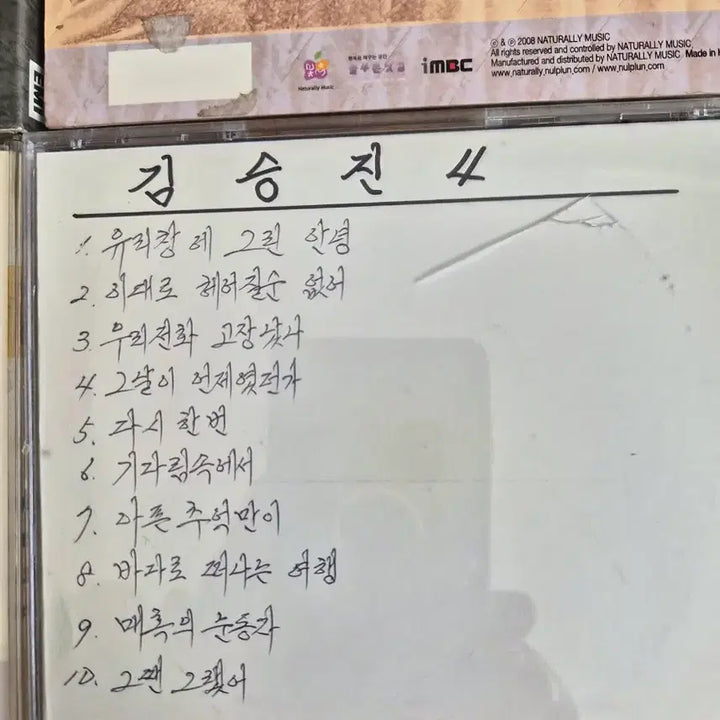 Naturally Music
iMBC
© & ℗ 2008 NATURALLY MUSIC
All rights reserved and controlled by NATURALLY MUSIC,
Manufactured and distributed by NATURALLY MUSIC. Made in
www.naturally.nulplun.com / www.nulplun.com
김승진 4
1. 유리창에 그린 안녕
2. 이대로 헤어질순 없어
3. 우리전화 고장났나
4. 그날이 언제였던가
5. 다시 한번
6. 기다림속에서
7. 아픈 추억만이
8. 바다로 떠나는 여행
9. 매혹의 눈동자
10. 그땐 그랬어